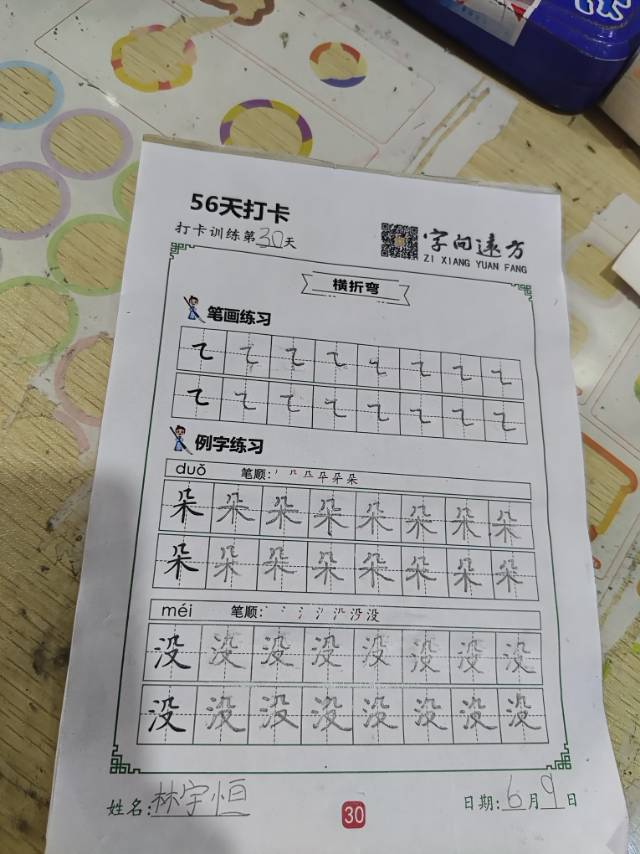 56天打卡
打卡训练第30天
字向远方
ZI XIANG YUAN FANG
横折弯
笔画练习
例字练习
duǒ 笔顺:
朵 朵 朵 朵 朵 朵 朵 朵
朵 朵 朵 朵 朵 朵 朵 朵
méi 笔顺:
没 没 没 没 没 没 没 没
没 没 没 没 没 没 没 没
姓名:林宇恒
30
日期:6月9日